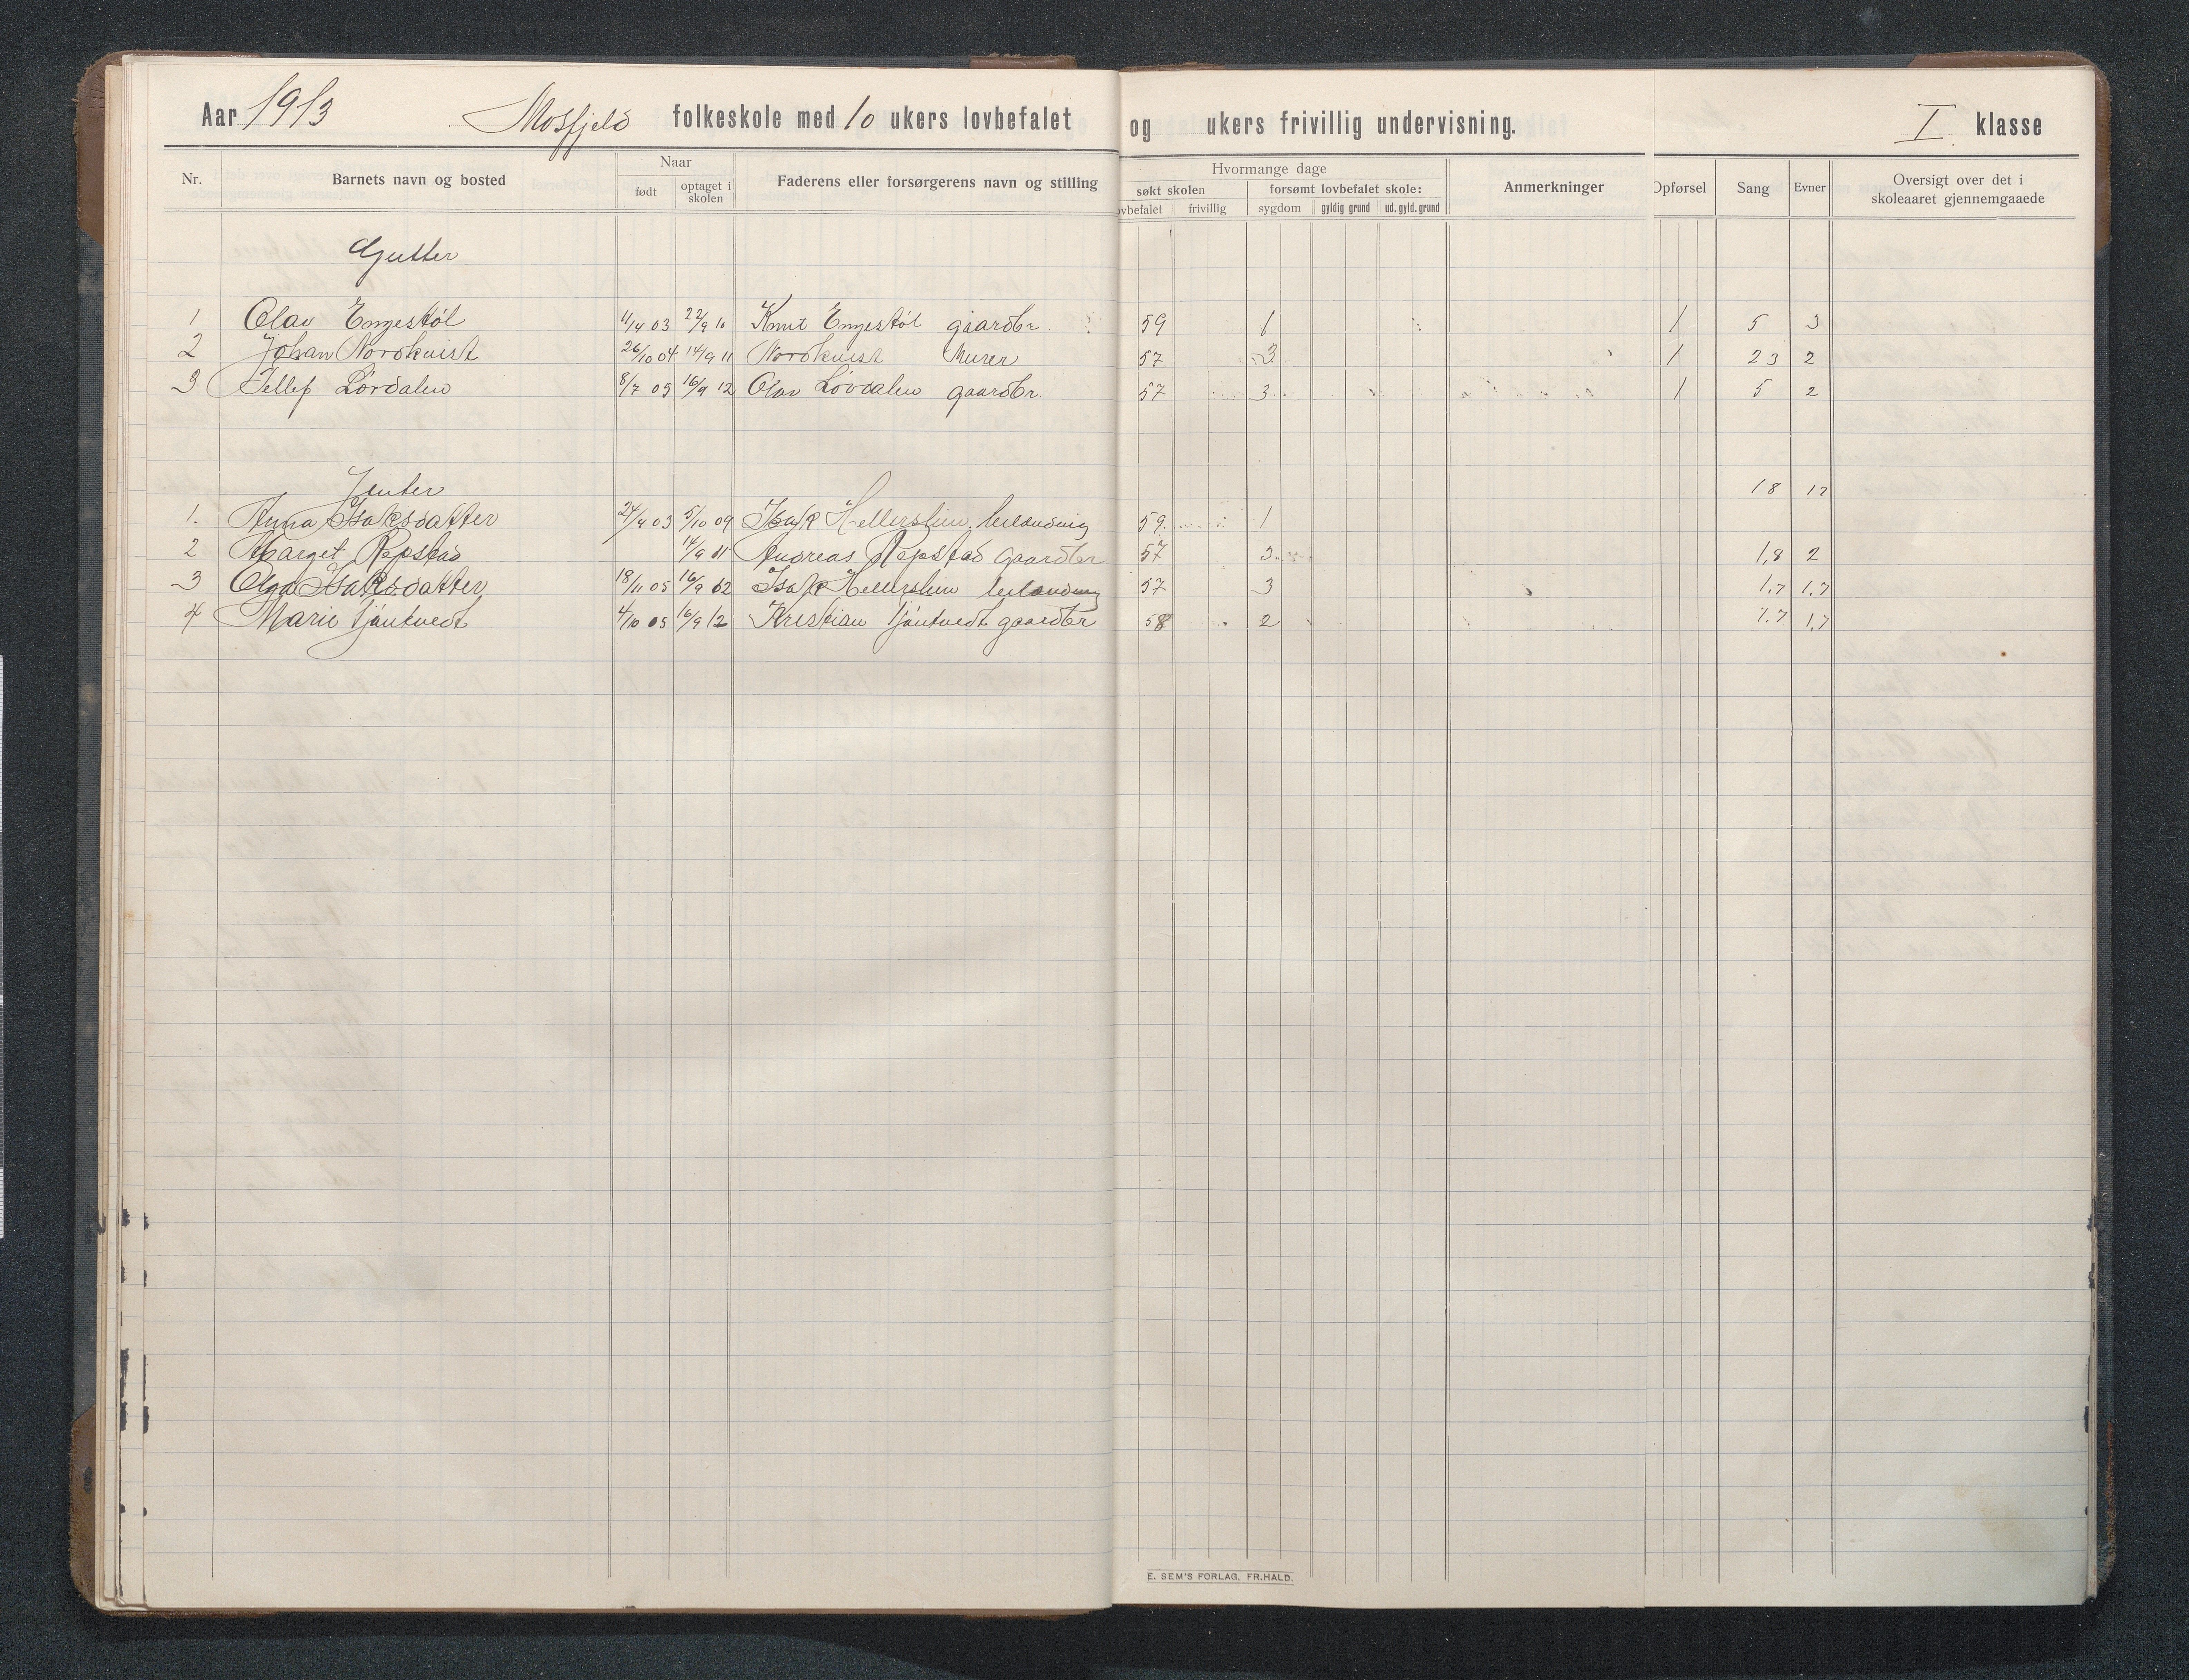 Aar 1913 Mosfjeld folkeskole med 10 ukers lovbefalet og ukers frivillig undervisning. I klasse
Nr. Barnets navn og bosted Naar Faderens eller forsørgerens navn og stilling Hvormange dage Anmerkninger Opførsel Sang Evner Oversigt over det i skoleaaret gjennemgaaede
født optaget i skolen søkt skolen forsømt lovbefalet skole:
ovbefalet frivillig sygdom gyldig grund ud. gyld. grund
Gutter
1 Olav Engestøl 11/4 03 22/9 10 Knut Engestøl gaardbr. 59 1 1 5 3
2 Johan Nordkvist 26/10 04 14/9 11 Nordkvist Murer 57 3 1 2 3 2
3 Tellef Lørdalen 8/7 05 16/9 12 Olav Lövdalen gaardbr. 57 3 1 5 2
Jenter 1 8 1 7
1. Anna Isaksdatter 24/4 03 5/10 09 Isak 59 1
2 Marget Repstad 14/9 11 Andreas Repstad gaardbr 57 3 1,8 2
3 Olga Isaksdatter 18/11 05 16/9 12 Isak 57 3 1,7 1,7
4 Marie Tjäntvedt 4/10 05 16/9 12 Kristian Tjäntvedt gaardbr 58 2 1.7 1,7
E. SEM'S FORLAG, FR.HALD.